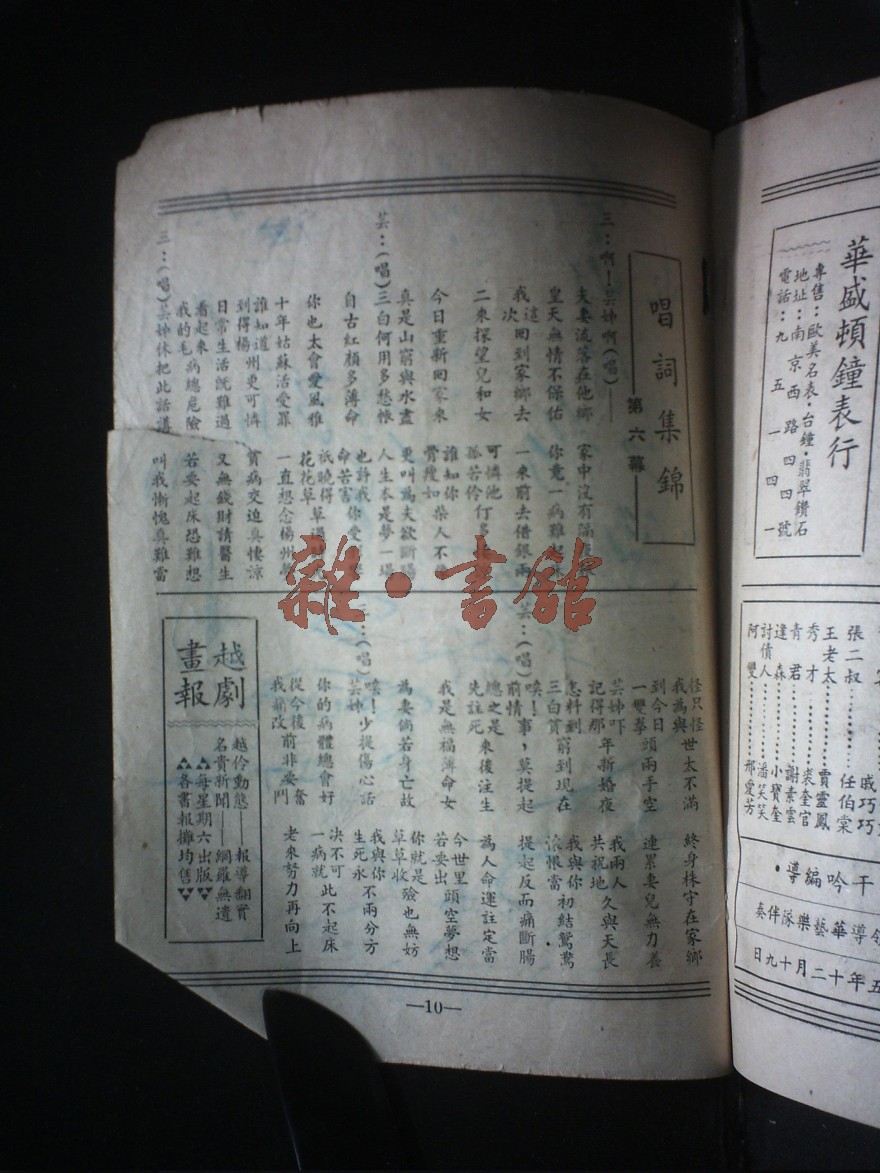 唱詞集錦
第六幕
三:啊!芸姊啊(唱)——
夫妻流落在他鄉
家中沒有隔
皇天無情不保佑
你竟一病難
我這次回到家鄉去
一來前去借銀兩
二來探望兒和女
可憐他孤苦伶仃多
今日重新回家來
誰知你骨瘦如柴人不
真是山窮與水盡
更叫為夫欲斷腸
芸:(唱)三白何用多愁悵
人生本是夢一場
自古紅顏多薄命
也許我命苦害你愛
你也太會愛風雅
祇曉得花花草草過
十年姑蘇活受罪
一直想念楊州
誰知道到得楊州更可憐
貧病交迫真悽諒
日常生活既難過
又無錢財請醫生
看起來我的毛病總危險
若要起床恐難想
三:(唱)芸姊休把此話講
叫我慚愧真難當
怪只怪我為與世太不滿
終身株守在家鄉
到今日一雙拳頭兩手空
連累妻兒無力養
芸姊吓記得那年新婚夜
我兩人共祝地久與天長
怎料到三白貧窮到現在
我與你初結鴛鴦滾悵當
芸:(唱)唉!前情事,莫提起
提起反而痛斷腸
總之是先註死來後注生
為人命運註定當
我是無福薄命女
今世里若要出頭空夢想
為妻倘若身亡故
你就是草草收殮也無妨
三:(唱)唉!芸姊少提傷心話
我與你生死永不兩分方
你的病體總會好
決不可一病就此不起床
從今後我痛改前非要奮鬥
老來努力再向上
越劇畫報
越伶動態——報導翻實
名貴新聞——網羅無遺
▲▲每星期六出版▼▼
▲▲各書報攤均售▼▼
—10—
華盛頓鐘表行
專售:歐美名表·台鐘·翡翠鑽石
地址:南京西路四四號
電話:九五一四一
戚巧巧
張二叔………任伯棠
王老太………賈靈鳳
秀才………裘奎官
青君………謝素雲
逢森………小寶奎
討債人………潘笑笑
阿雙………邢愛芳
干吟編導·
領導華藝樂隊伴奏
五年十二月十九日
雜·書舘